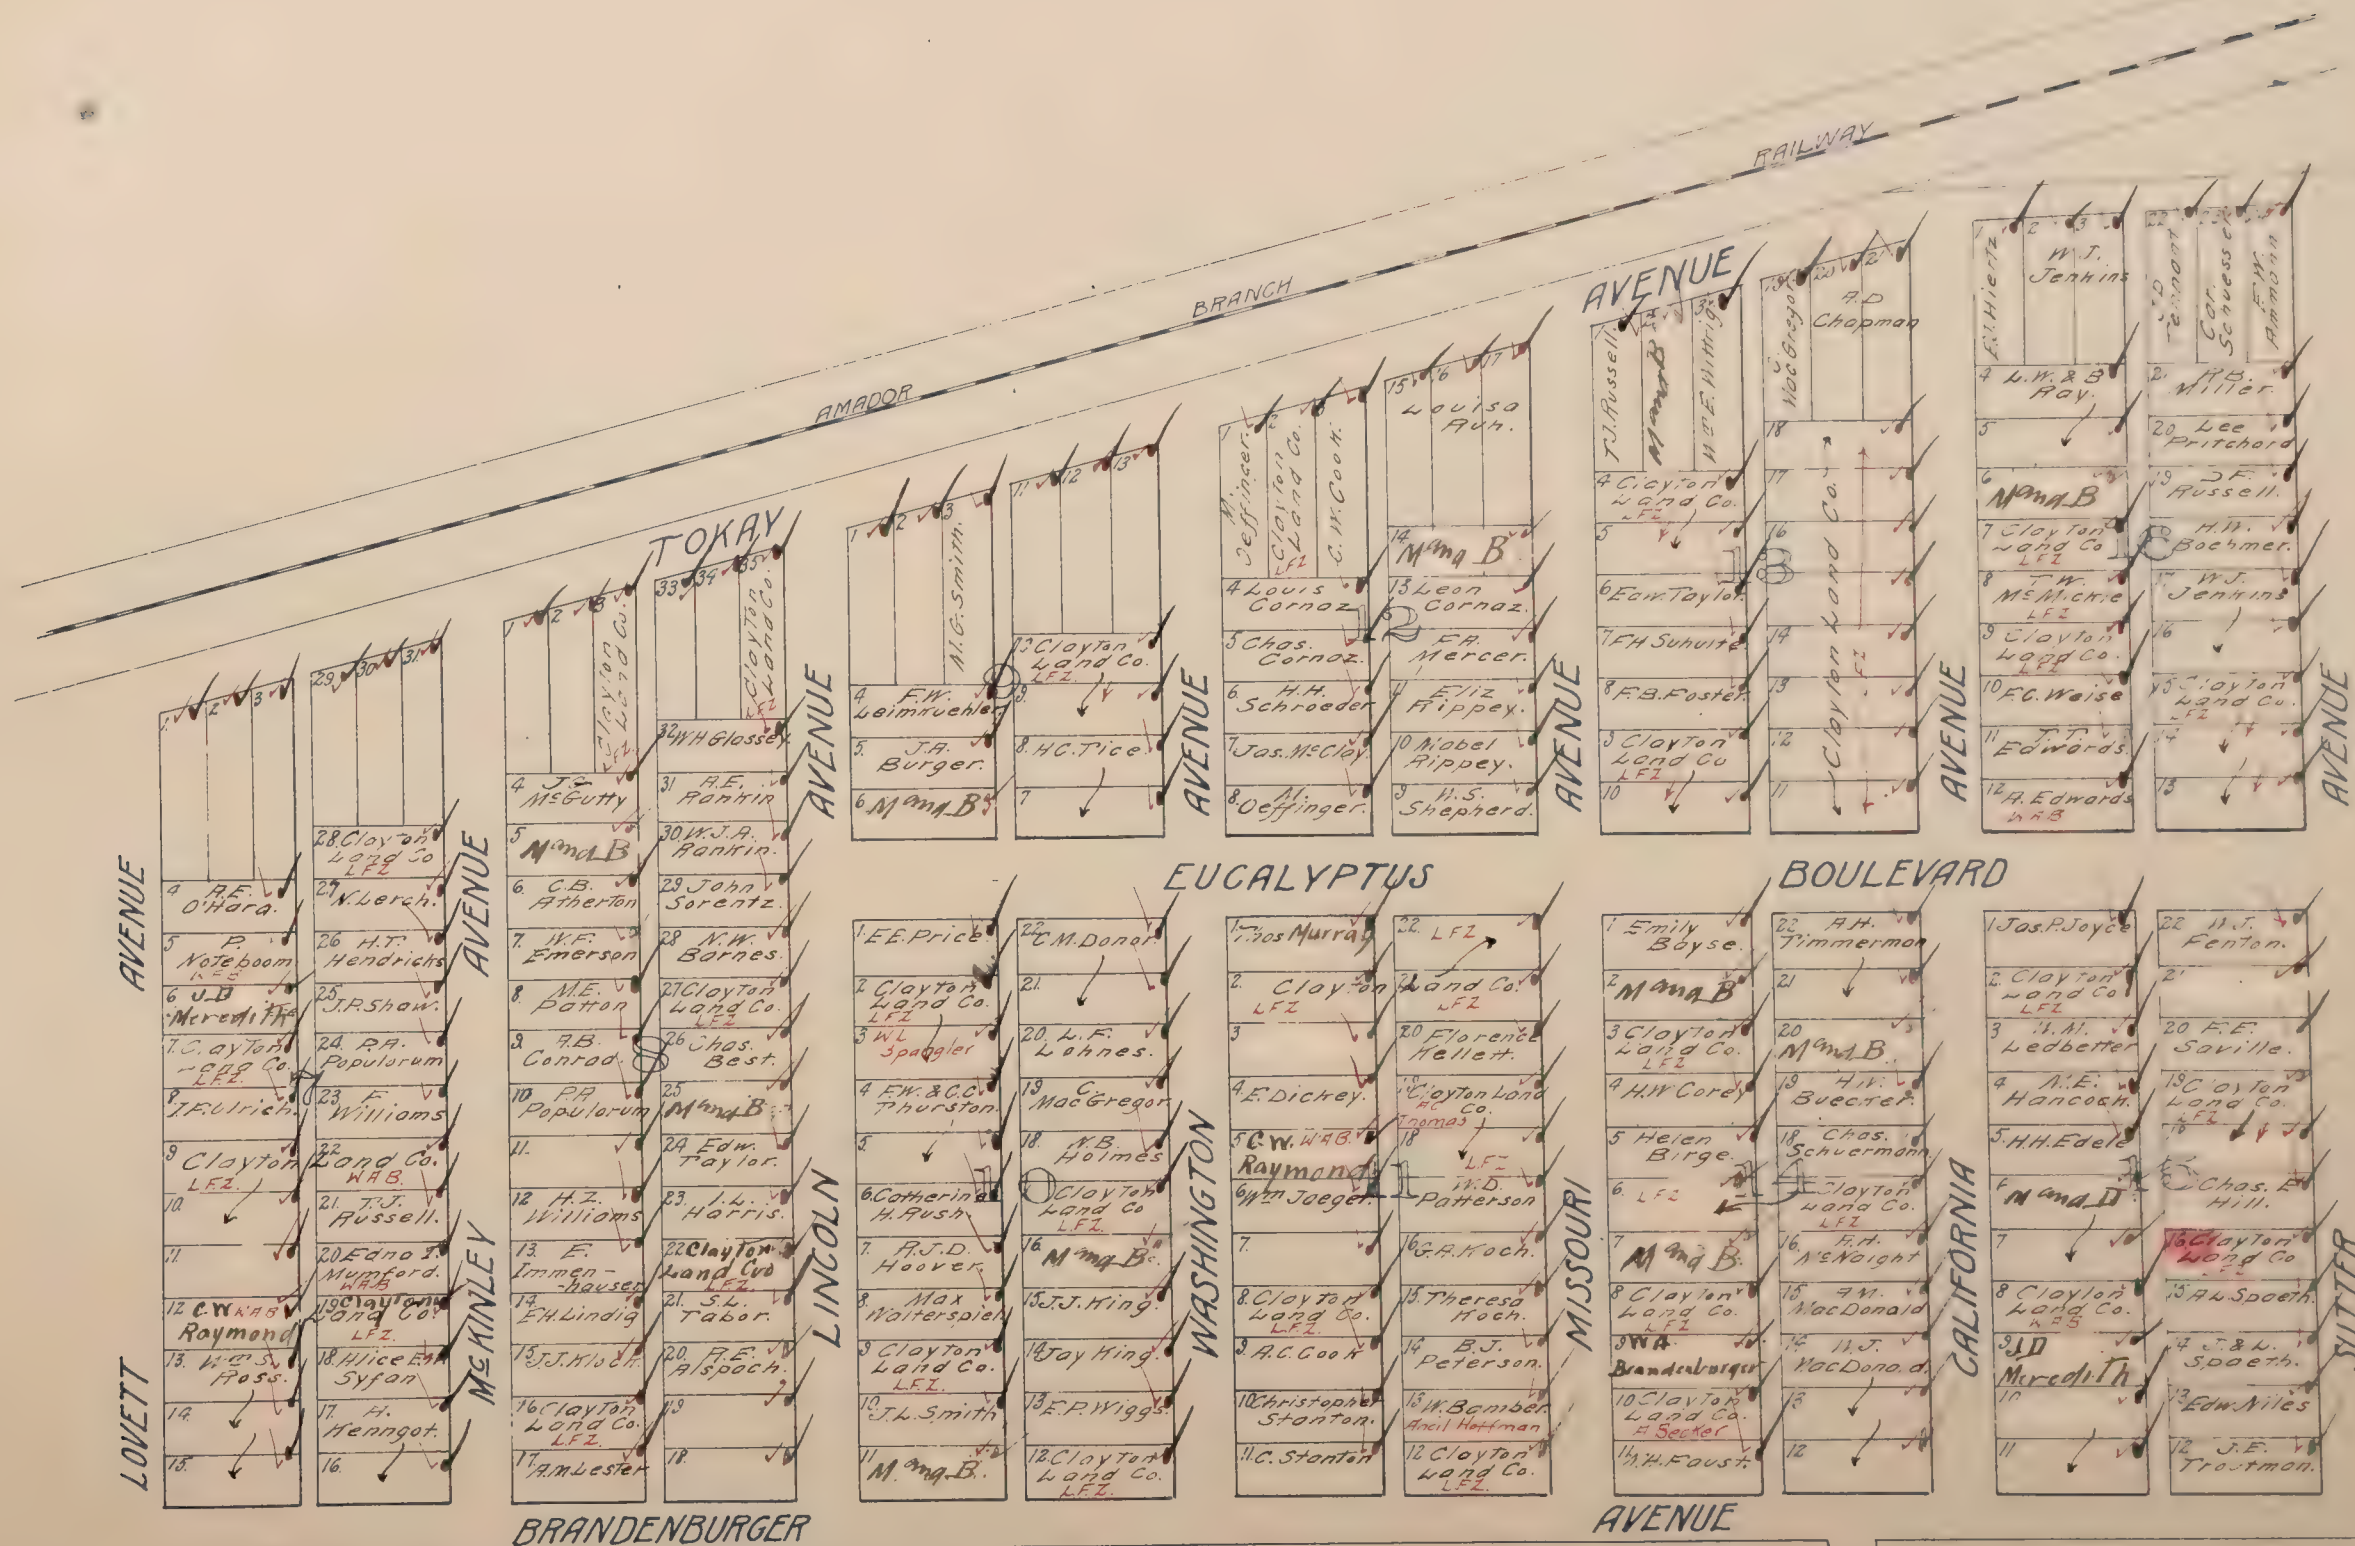 RAILWAY
BRANCH
AMADOR
TOKAY
AVENUE
EUCALYPTUS
BOULEVARD
BRANDENBURGER
AVENUE
LOVETT
AVENUE
McKINLEY
AVENUE
LINCOLN
AVENUE
WASHINGTON
AVENUE
MISSOURI
AVENUE
CALIFORNIA
AVENUE
SUTTER
AVENUE
1
2
3
4 A.E.
O'Hara.
5 P.
Noteboom
6 J.D
Meredith
7. Clayton
Land Co.
L.F.Z.
8. J.F. Ulrich
9 Clayton
L.F.Z.
10.
11.
12 C.W WAB
Raymond
13. Wm S.
Ross.
14.
15.
29
30
31
28. Clayton
Land Co
LFZ
27 N. Lerch.
26 H.T.
Hendricks
25 J.P. Shaw.
24. P.A.
Populorum
23 F.
Williams
22 Land Co.
WAB.
21. T.J.
Russell.
20 Edna I.
Mumford.
WAB
19 Clayton
Land Co.
LFZ.
18. Alice
Syfan
17. H.
Henngot.
16.
1
2
3
Clayton
Land Co.
LFZ
4 J.G
McGutty
5 M and B
6. C.B.
Atherton
7. W.F.
Emerson
8. M.E.
Patton
9. A.B.
Conrad.
10 P.A
Populorum
11.
12 H.Z.
Williams
13. E.
Immen-
-hauser
14. E.H. Lindig
15 J.J. Klock
16 Clayton
Land Co.
LFZ.
17. A.M. Lester
33
34
35
Clayton
Land Co.
LFZ
32 W H Glassey
31 A.E.
Rankin
30. W.J.A.
Rankin.
29 John
Sorentz.
28 N.W.
Barnes.
27 Clayton
Land Co.
LFZ
26 Chas.
Best.
25 M and B
24 Edw.
Taylor.
23. I.L.
Harris.
22 Clayton
Land Co
LFZ.
21. S.L.
Tabor.
20. R.E.
Alspach.
19
18.
1
2
3
M.G. Smith.
4 F.W.
Leimkuehler
5. J.A.
Burger.
6 M and B
11
12
13
10 Clayton
Land Co.
LFZ.
9.
8. H.C. Tice.
7
1. E.E. Price
2 Clayton
Land Co.
LFZ
3 WL
Spangler
4 F.W. & C.C.
Thurston.
5.
6. Catherine
H. Rush.
7. R.J.D.
Hoover.
8. Max
Walterspiel
9 Clayton
Land Co.
L.F.Z.
10. J.L. Smith
11 M. and B.
22 C.M. Donor.
21.
20. L.F.
Lohnes.
19 C.
MacGregor
18. N.B.
Holmes
Clayton
Land Co
L.F.Z.
16. M and B.
15 J.J. King.
14 Jay King.
13 E.P. Wiggs.
12. Clayton
Land Co.
L.F.Z.
1
2
3
M.
Oeffinger.
Clayton
Land Co.
LFZ
C.W. Cook.
4 Louis
Cornaz
5 Chas.
Cornaz.
6. H.H.
Schroeder
7 Jas. McClay
8. M.
Oeffinger.
12
15
16
17
Louisa
Ruh.
14. M and B
13 Leon
Cornaz.
F.A.
Mercer.
11 Eliz
Rippey.
10 Mabel
Rippey.
9 W.S.
Shepherd.
1. Thos Murray
2. Clayton
LFZ
3
4. E. Dickey.
5 C.W. WAB.
Raymond
6 Wm Jaeger.
7.
8. Clayton
Land Co.
L.F.Z.
9. A.C. Cook
10 Christopher
Stanton.
11. C. Stanton
22. LFZ
21 Land Co.
LFZ
20 Florence
Kellett.
19 Clayton Land
Co.
AC
Thomas
18
LFZ
W.D.
Patterson
16 G.A. Koch.
15. Theresa
Koch.
14 B.J.
Peterson.
13 W. Bamber
Ancil Hoffman
12 Clayton
Land Co.
LFZ.
1
3
T.J. Russell.
M and B
Wm E. Wittig
4 Clayton
Land Co.
LFZ
5
6 Edw. Taylor
7 F H Schulte
8 F.B. Foster
9 Clayton
Land Co
LFZ
10
18
19
20
21
MacGregor
A.D
Chapman
18
17
16
14
13
12
11
Clayton Land Co.
1 Emily
Boyse.
2 M and B
3 Clayton
Land Co.
LFZ
4 H.W Corey
5 Helen
Birge.
6. LFZ
7 M and B.
8 Clayton
Land Co.
LFZ
9 WA
Brandenburger
10 Clayton
Land Co.
A Secker
11. W.H. Faust.
22 A.H.
Timmerman
21
20
M and B.
19 H.W.
Buecker.
18 Chas.
Schuermann
Clayton
Land Co.
LFZ
16. A.H.
McNaight
15 A.M.
MacDonald
14 W.J.
MacDonald.
13
12
1
2
3
W.J.
Jenkins
4 L.W. & B
Ray.
5
6
M and B
7 Clayton
Land Co
LFZ
8 T.W.
McMickie
LFZ
9 Clayton
Land Co.
LFZ
10 F.C. Weise
11 T.T.
Edwards.
12 A. Edwards
WAB
22
Tennant
Car.
Schuesser
F.W.
Ammann
R.B.
Miller.
20 Lee
Pritchard
19 D.F.
Russell.
H.W.
Boehmer.
17 W.J.
Jenkins
16
15 Clayton
Land Co.
LFZ
14
13
1 Jas. P. Joyce
2. Clayton
Land Co
LFZ
3 W.M.
Ledbetter
4 N.E.
Hancock.
5. H.H. Edele
6 M and B
7
8 Clayton
Land Co.
WAB
9 J D
Meredith
10
11
22 W.J.
Fenton.
21
20 F.E.
Saville.
19 Clayton
Land Co.
LFZ
Chas. E
Hill.
16 Clayton
Land Co
15 A.L. Spaeth.
14 J. & L.
Spaeth.
13 Edw. Niles
12 J.E.
Troutman.